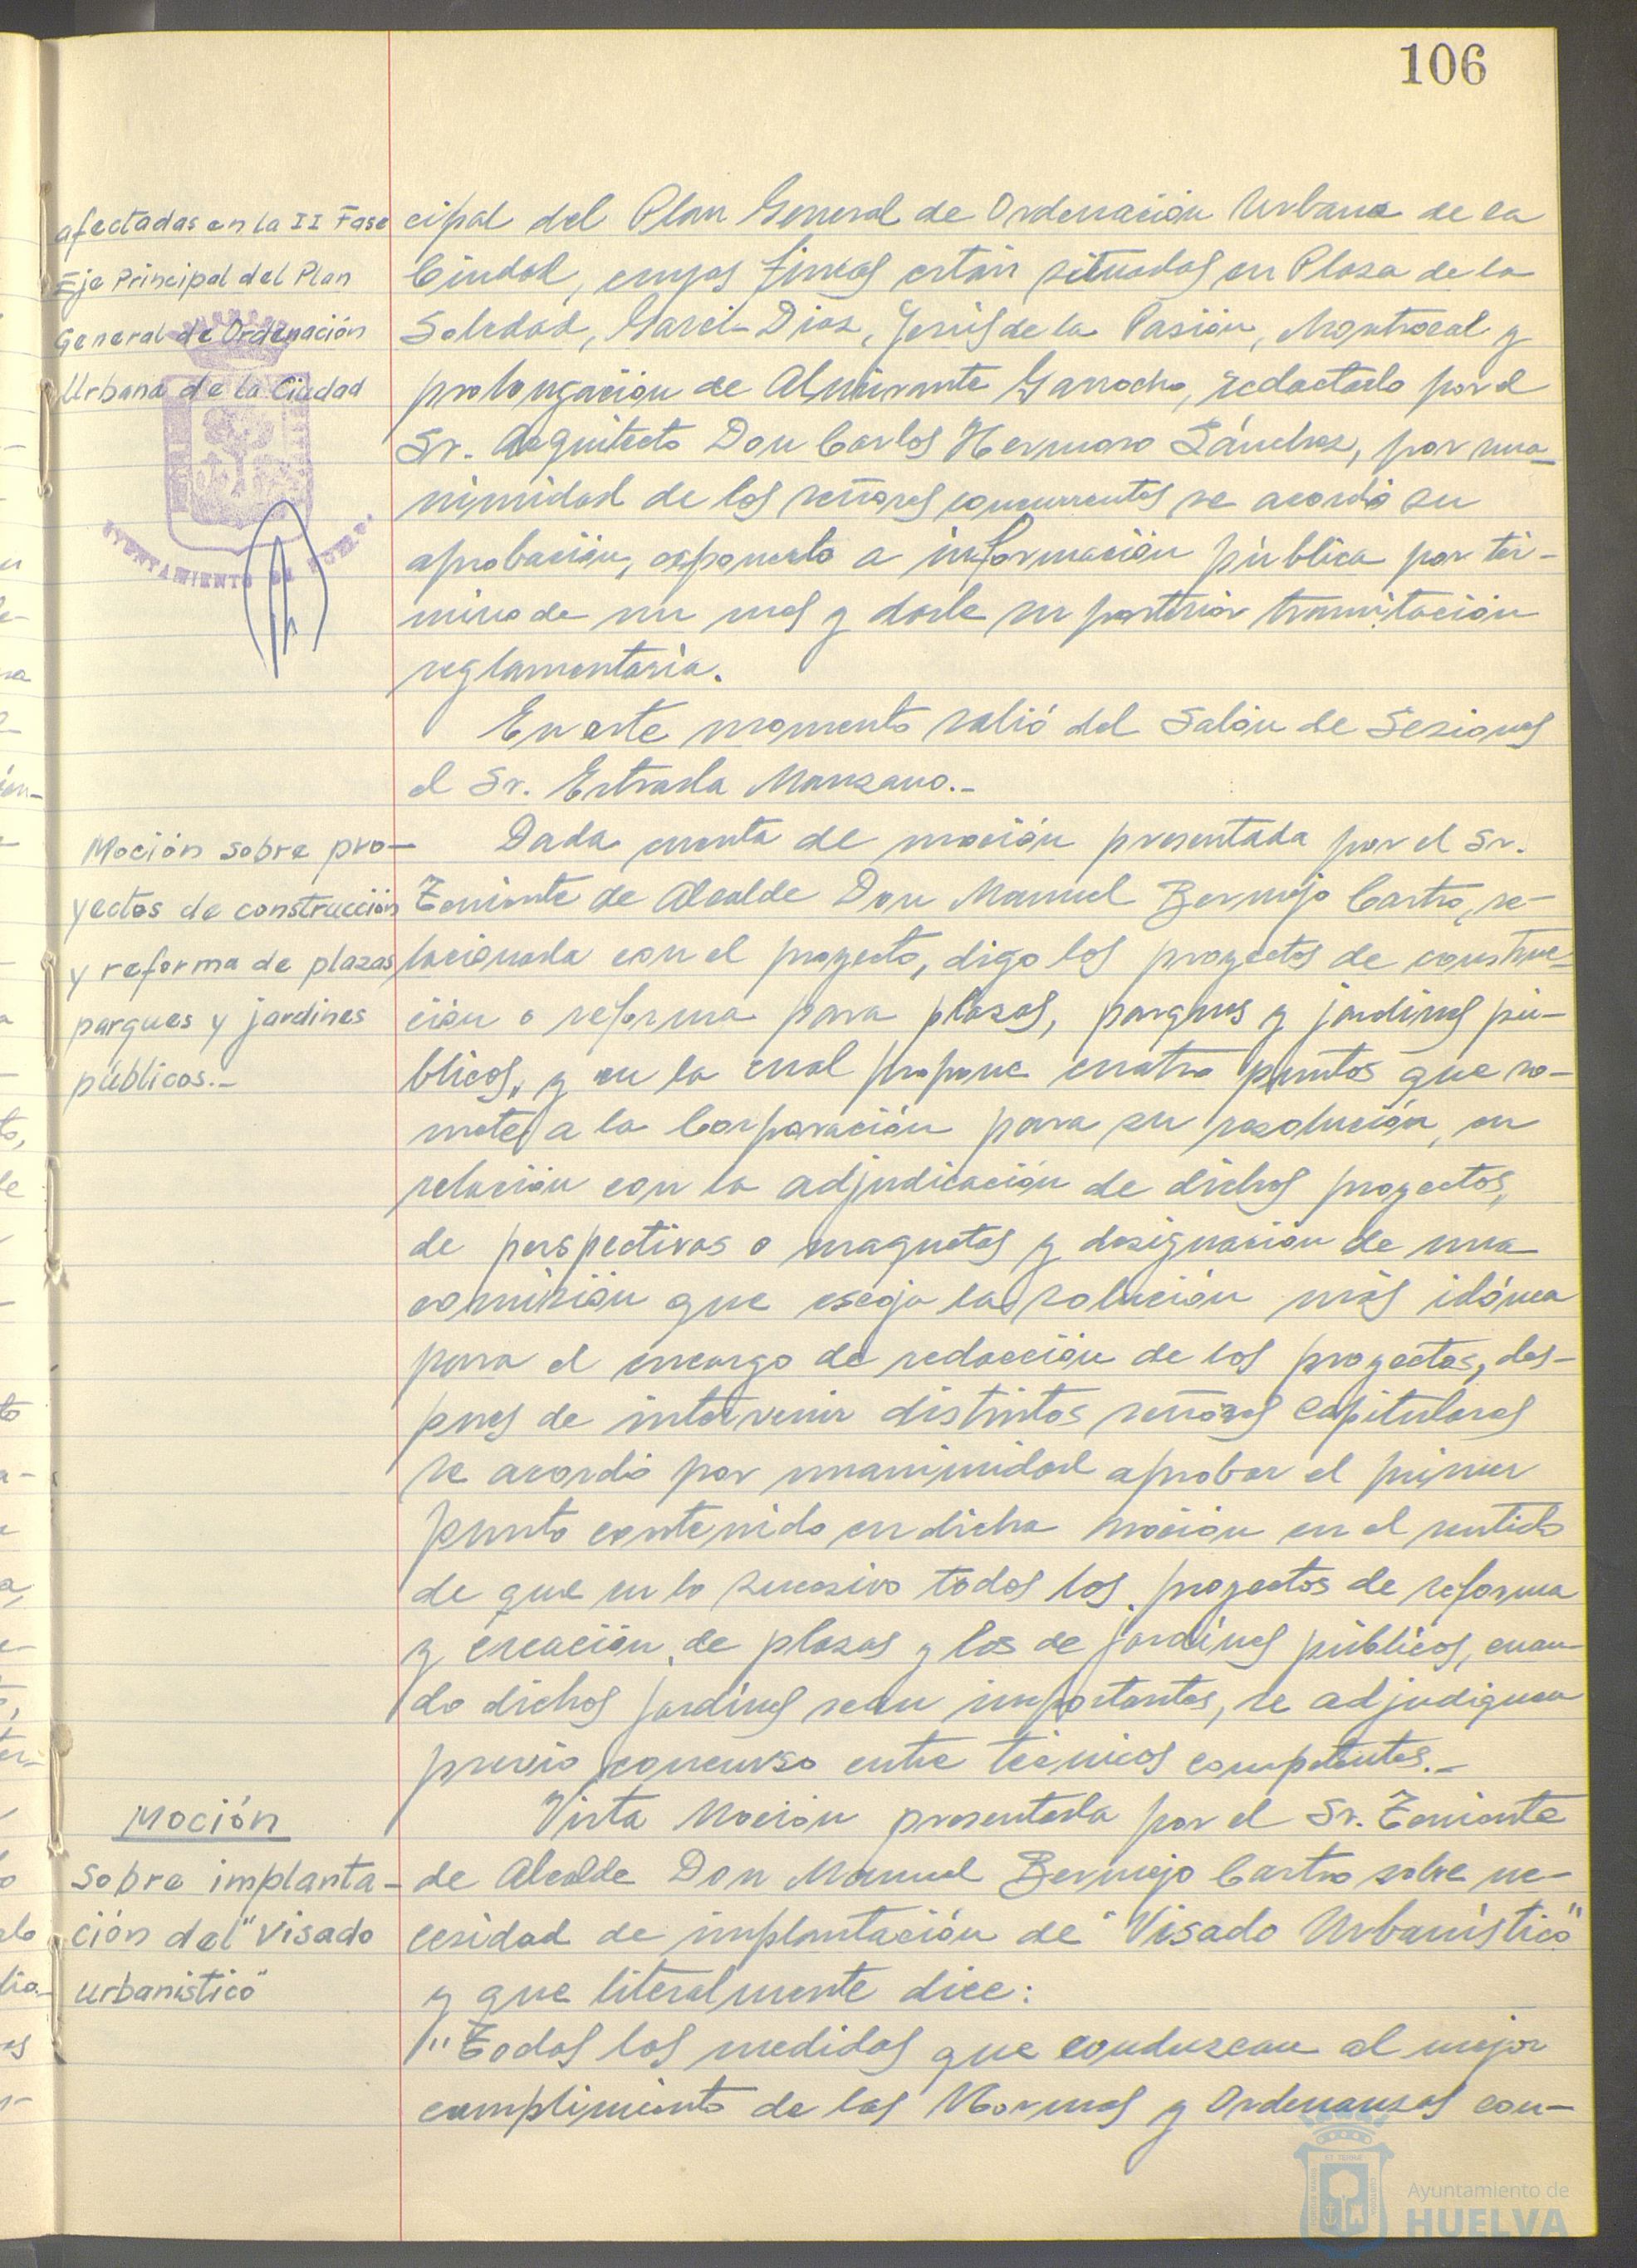 106
afectadas en la II Fase
Eje Principal del Plan
General de Ordenación
Urbana de la Ciudad
AYUNTAMIENTO DE HUELVA
cipal del Plan General de Ordenación Urbana de la
Ciudad, cuyas fincas están situadas en Plaza de la
Soledad, Garci-Diaz, Jesús de la Pasión, Montrocal y
prolongación de Almirante Garrocho, redactado por el
Sr. Arquitecto Don Carlos Hermoso Sánchez, por una-
nimidad de los señores concurrentes se acordó su
aprobación, exponerlo a información pública por tér-
mino de un mes y darle su posterior tramitación
reglamentaria.
En este momento salió del Salón de Sesiones
el Sr. Estrada Manzano.-
Moción sobre pro-
yectos de construcción
y reforma de plazas
parques y jardines
públicos.-
Dada cuenta de moción presentada por el Sr.
Teniente de Alcalde Don Manuel Bermejo Castro, re-
lacionada con el proyecto, digo los proyectos de construc-
ción o reforma para plazas, parques y jardines pú-
blicos, y en la cual propone cuatro puntos que so-
mete a la Corporación para su resolución, en
relación con la adjudicación de dichos proyectos,
de perspectivas o maquetas y designación de una
comisión que escoja la solución más idónea
para el encargo de redacción de los proyectos, des-
pues de intervenir distintos señores capitulares
se acordó por unanimidad aprobar el primer
punto contenido en dicha moción en el sentido
de que en lo sucesivo todos los proyectos de reforma
y creación de plazas y los de jardines públicos, cuan-
do dichos jardines sean importantes, se adjudiquen
previo concurso entre técnicos competentes.-
Moción
sobre implanta-
ción del "visado
urbanistico"
Vista Moción presentada por el Sr. Teniente
de Alcalde Don Manuel Bermejo Castro sobre ne-
cesidad de implantación de "Visado Urbanístico"
y que literalmente dice:
"Todas las medidas que conduzcan al mejor
cumplimiento de las Normas y Ordenanzas con-
Ayuntamiento de
HUELVA